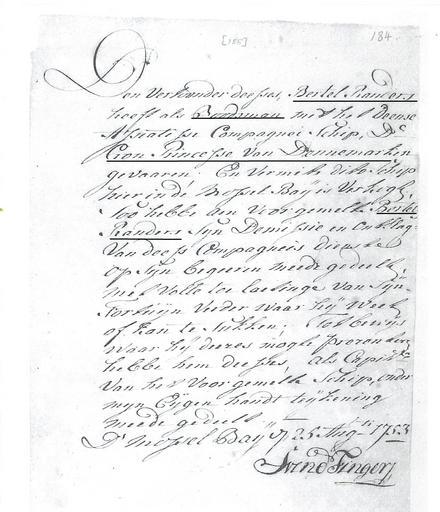 [185]
184.
Den Verthonder deeses, Bertel Randers
heeft als Boodsman met het Deense
Assiatisse Compagnei Schip, De
Cron Princesse Van Dennemarken
gevaaren; En Vermits dito Schip
hier in de Mossel Baÿ is Verkogt,
Soo hebbe aen Voorgemelte Bertel
Randers Sijn Demissie en ontslag
Van dees Compagneis dienst
op Sijn begeeren meede gedeelt,
met Volle toe laetinge van Sijn
Fortuijn Verder waar hij
of kan te Sukken; Tot bewijs
waar hij deeses mogte
hebbe hem deeses, als Capitn
Van het Voorgemelte Schip, onder
mijn Eijgen handt teijkening
meede gedeelt
Dt Mossel Baÿ 25 Augusti 1753
Svend Fenger